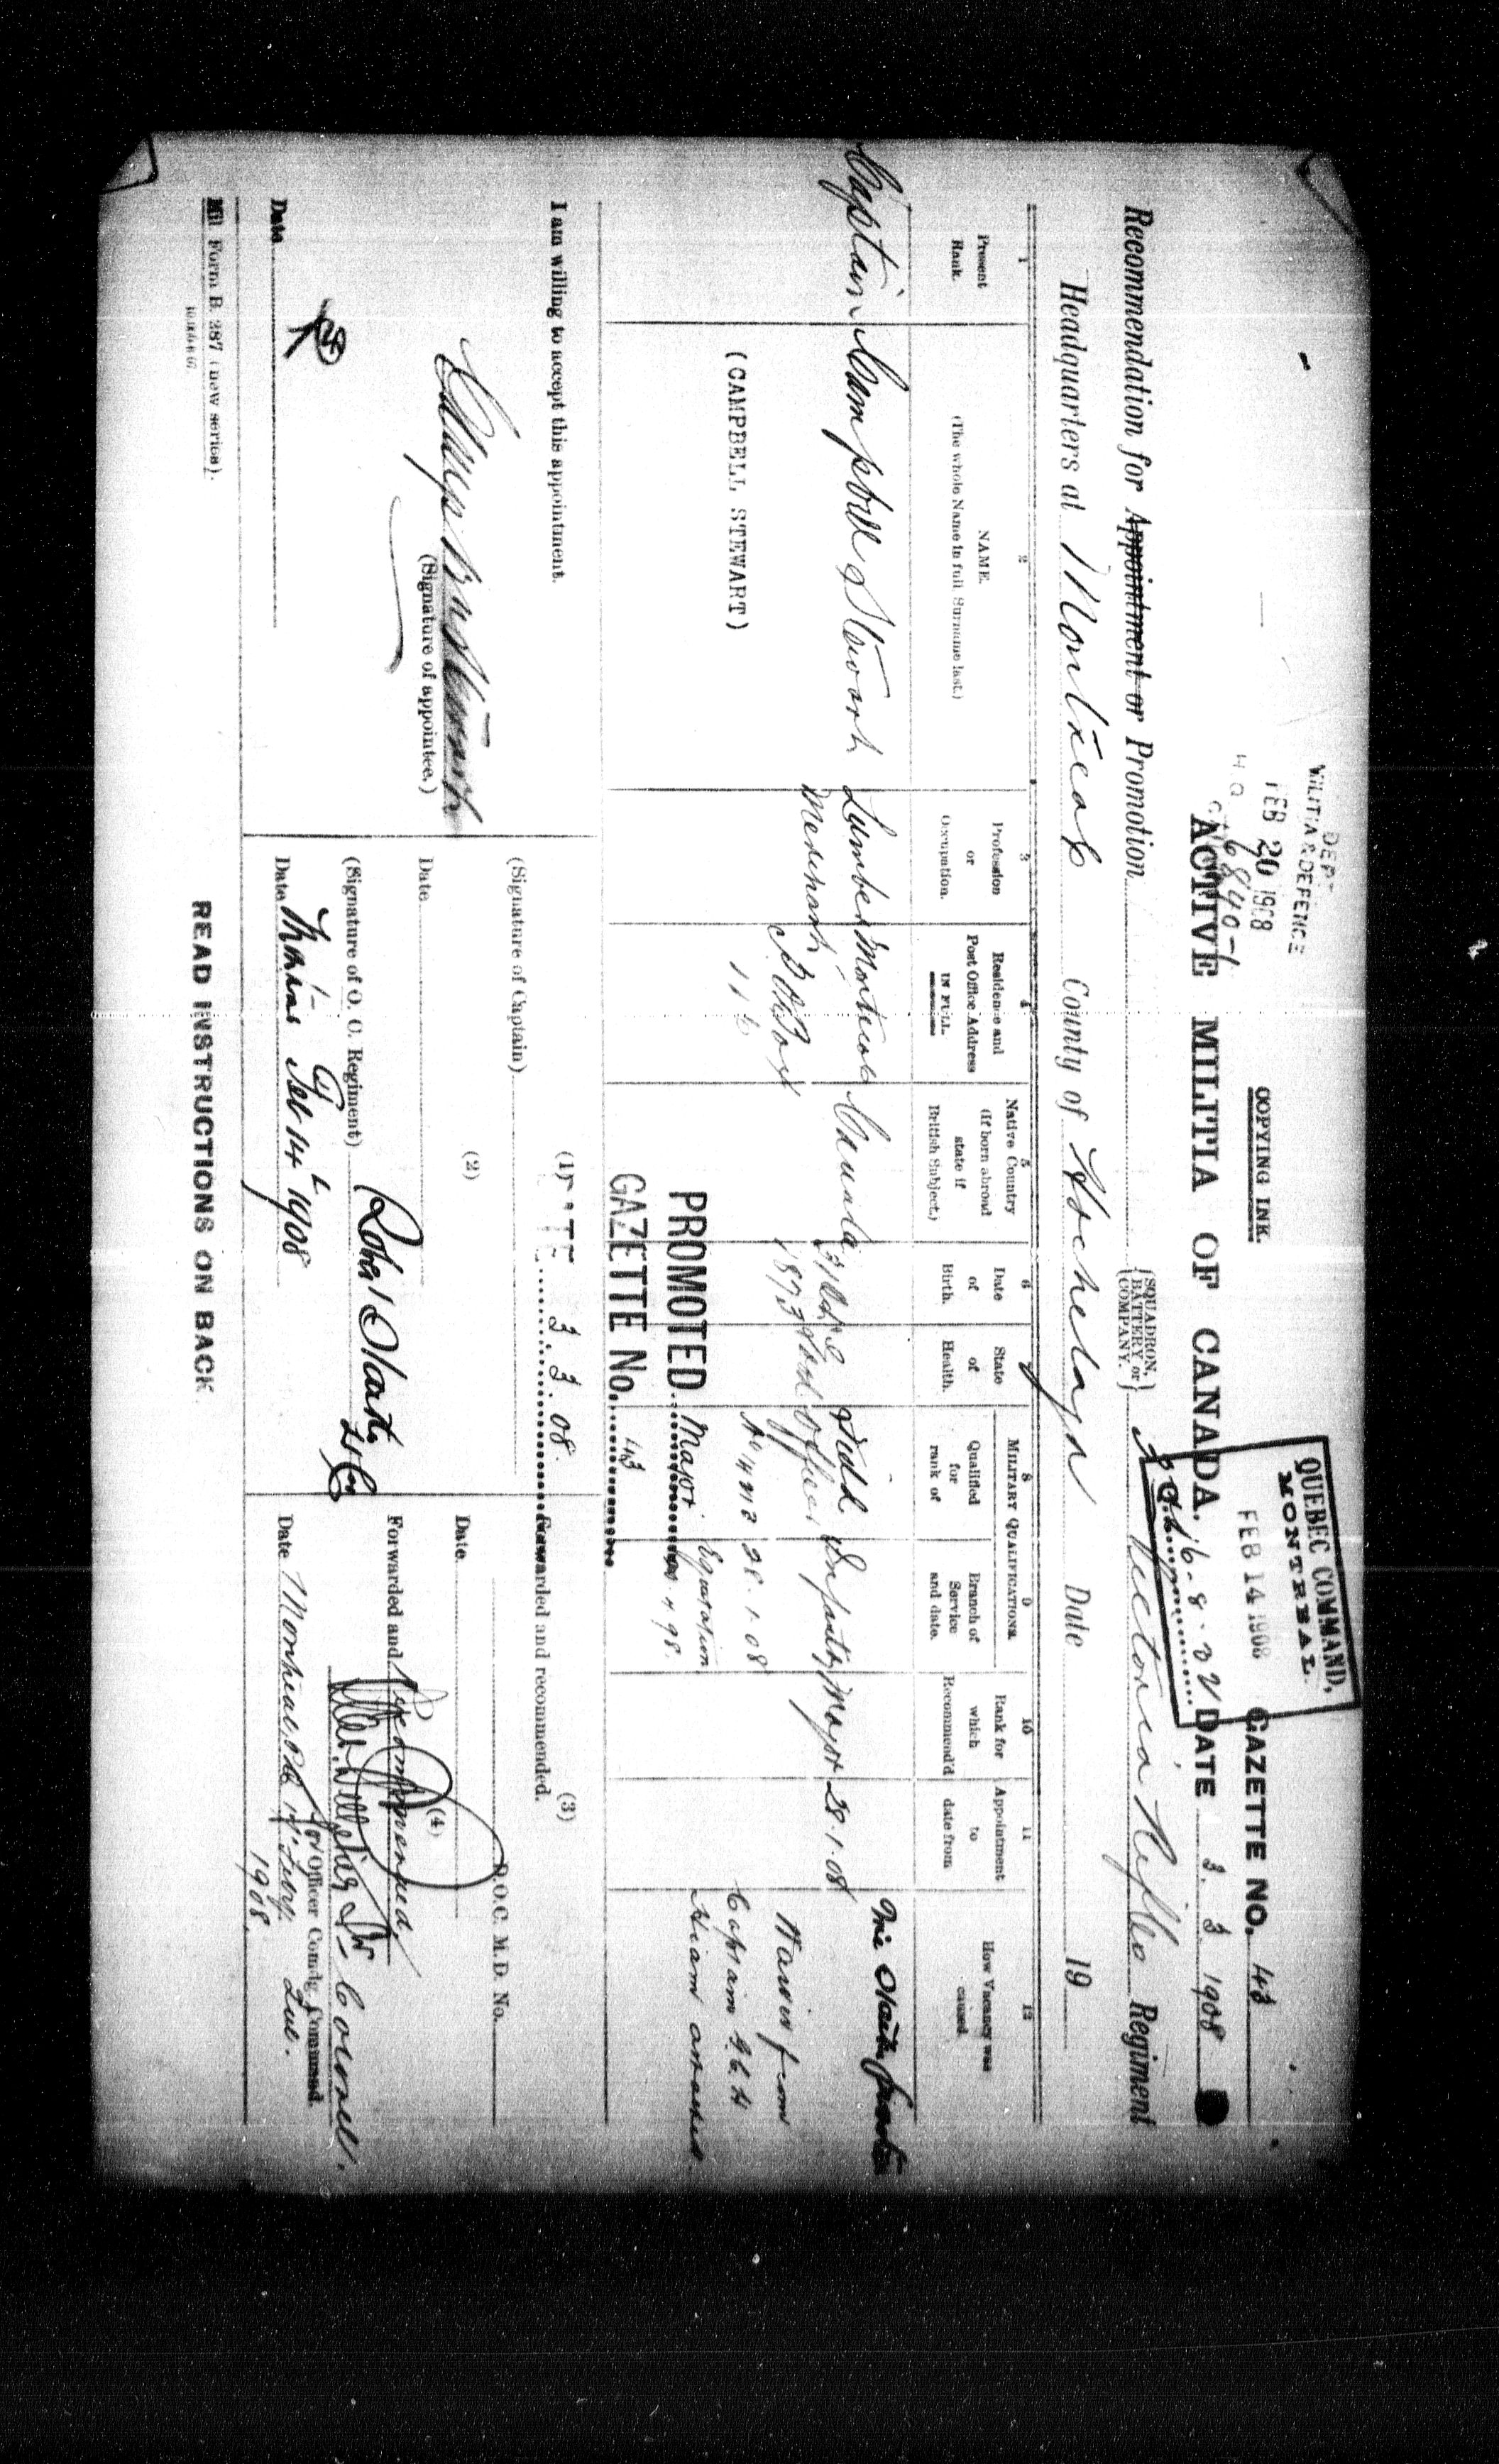 DEP'T
MILITIA & DEFENCE
FEB 20 1908
H.Q. 6840-1
COPYING INK.
QUEBEC COMMAND,
MONTREAL
FEB 14 1908
GAZETTE NO. 43
ACTIVE MILITIA OF CANADA.
DATE 3. 3. 1908
Recommendation for Appointment or Promotion
{SQUADRON, BATTERY, or COMPANY.}
Victoria Rifles Regiment
Headquarters at Montreal County of Hochelaga Date 19
1
Present
Rank.
2
NAME.
(The whole Name in full, Surname last.)
3
Profession
or
Occupation.
4
Residence and
Post Office Address
IN FULL.
5
Native Country
(If born abroad
state if
British Subject.)
6
Date
of
Birth.
State
of
Health.
MILITARY QUALIFICATIONS.
8
Qualified
for
rank of
9
Branch of
Service
and date.
10
Rank for
which
Recommend'd
11
Appointment
to
date from
12
How Vacancy was
caused.
Captain Campbell Stewart Lumber Merchant Montreal P O Box 116 Canada 1873 Good Field Officer Infantry Major 28.1.08
28.1.08
(CAMPBELL STEWART)
Captain
PROMOTED Major Equitation
GAZETTE No. 43
DATE 3. 3. 08.
I am willing to accept this appointment.
Campbell Stewart
(Signature of appointee.)
Date
(1)
(Signature of Captain)
Date
(2)
(Signature of O. C. Regiment)
Date Feb 14 1908
(3)
Forwarded and recommended.
D.O.C. M.D. No.
Date
(4)
Forwarded and recommended,
Colonel.
for Officer Comdg. Command.
Date Montreal, 1908.
Mil Form B. 287 (new series).
READ INSTRUCTIONS ON BACK